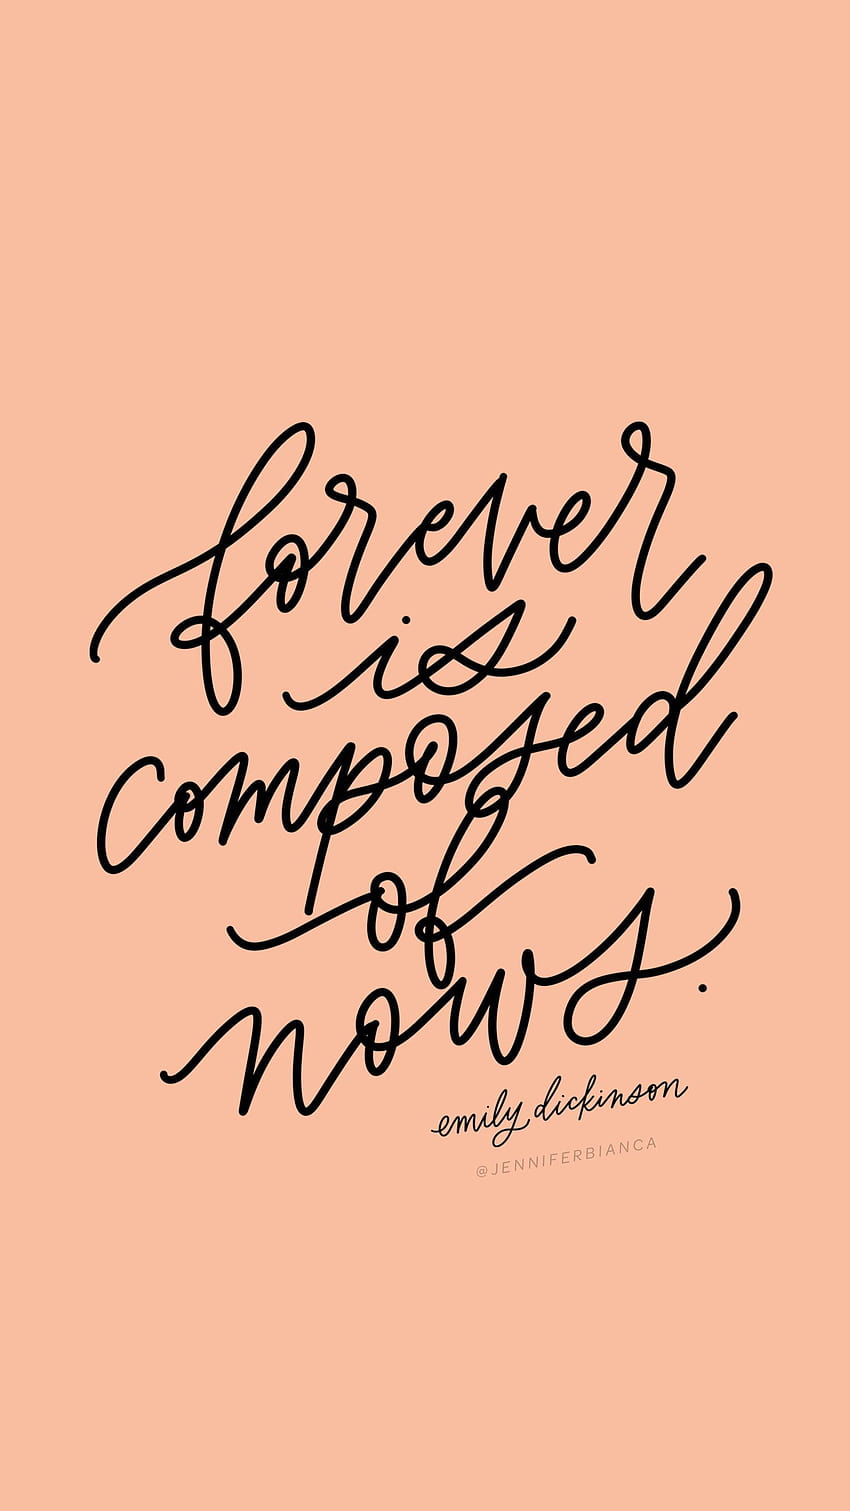 forever
is
composed
of
nows.
emily dickinson
@JENNIFERBIANCA